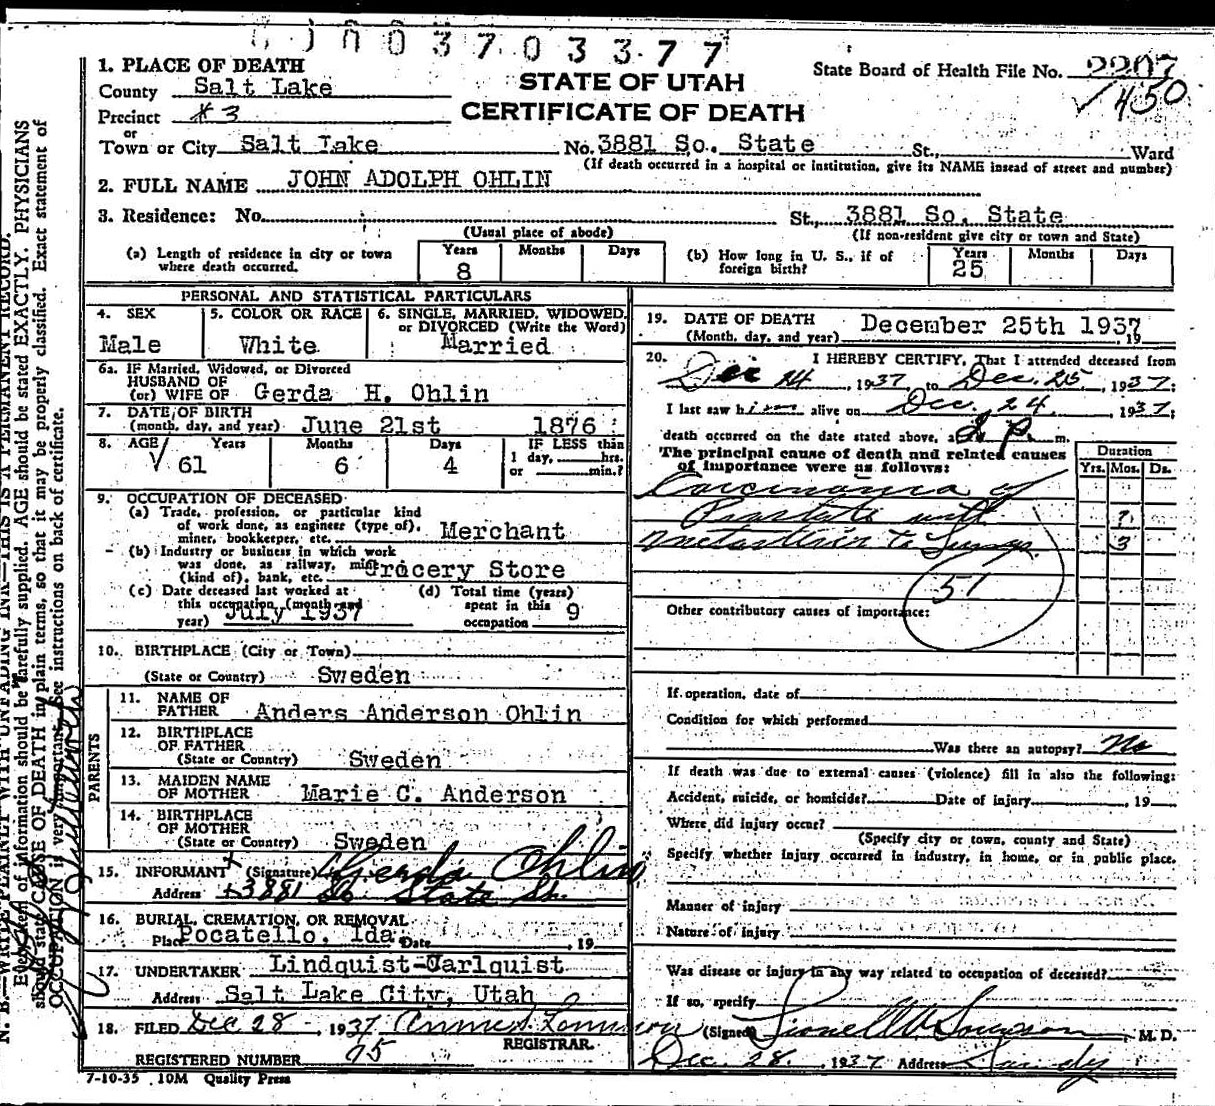 0 0 0 3 7 0 3 3 7 7
1. PLACE OF DEATH
County Salt Lake
Precinct #3
or
Town or City Salt Lake
STATE OF UTAH
CERTIFICATE OF DEATH
State Board of Health File No. 2207
✓ 450
No. 3881 So. State St., Ward
(If death occurred in a hospital or institution, give its NAME insead of street and number)
2. FULL NAME JOHN ADOLPH OHLIN
3. Residence: No. St., 3881 So. State
(Usual place of abode) (If non-resident give city or town and State)
(a) Length of residence in city or town where death occurred. Years 8 Months Days
(b) How long in U. S., if of foreign birth? Years 25 Months Days
PERSONAL AND STATISTICAL PARTICULARS
4. SEX Male
5. COLOR OR RACE White
6. SINGLE, MARRIED, WIDOWED, or DIVORCED (Write the Word) Married
6a. IF Married, Widowed, or Divorced
HUSBAND OF
(or) WIFE OF Gerda H. Ohlin
7. DATE OF BIRTH
(month, day, and year) June 21st 1876
8. AGE Years Months Days IF LESS than
✓ 61 6 4 1 day, hrs.
or min.?
9. OCCUPATION OF DECEASED
(a) Trade, profession, or particular kind
of work done, as engineer (type of),
miner, bookkeeper, etc. Merchant
(b) Industry or business in which work
was done, as railway, mine
(kind of), bank, etc. Grocery Store
(c) Date deceased last worked at
this occupation (month and
year) July 1937
(d) Total time (years)
spent in this
occupation 9
10. BIRTHPLACE (City or Town)
(State or Country) Sweden
PARENTS
11. NAME OF
FATHER Anders Anderson Ohlin
12. BIRTHPLACE
OF FATHER
(State or Country) Sweden
13. MAIDEN NAME
OF MOTHER Marie C. Anderson
14. BIRTHPLACE
OF MOTHER
(State or Country) Sweden
15. INFORMANT (Signature) Gerda Ohlin
Address 3881 So State St.
16. BURIAL, CREMATION, OR REMOVAL
Place Pocatello, Ida. Date , 19
17. UNDERTAKER Lindquist-Carlquist
Address Salt Lake City, Utah
18. FILED Dec 28, 1937
REGISTRAR.
REGISTERED NUMBER 75
7-10-35 10M Quality Press
19. DATE OF DEATH December 25th 1937
(Month, day, and year) , 19
20. I HEREBY CERTIFY, That I attended deceased from
Dec 24, 1937, to Dec. 25, 1937;
I last saw him alive on Dec. 24, 1937;
death occurred on the date stated above, at 2 p. m.
The principal cause of death and related causes
of importance were as follows:
Duration
Yrs. Mos. Ds.
Carcinoma of
Prostate with ?
metastisis to Lungs. 3
51
Other contributory causes of importance:
If operation, date of
Condition for which performed
Was there an autopsy? No
If death was due to external causes (violence) fill in also the following:
Accident, suicide, or homicide? Date of injury , 19
Where did injury occur?
(Specify city or town, county and State)
Specify whether injury occurred in industry, in home, or in public place.
Manner of injury
Nature of injury
Was disease or injury in any way related to occupation of deceased?
If so, specify
(Signed) Lionell W. Sorenson, M. D.
Dec. 28, 1937 Address Sandy
N. B.—WRITE PLAINLY WITH UNFADING INK—THIS IS A PERMANENT RECORD.
Every item of information should be carefully supplied. AGE should be stated EXACTLY. PHYSICIANS
should state CAUSE OF DEATH in plain terms, so that it may be properly classified. Exact statement of
OCCUPATION is very important. See instructions on back of certificate.